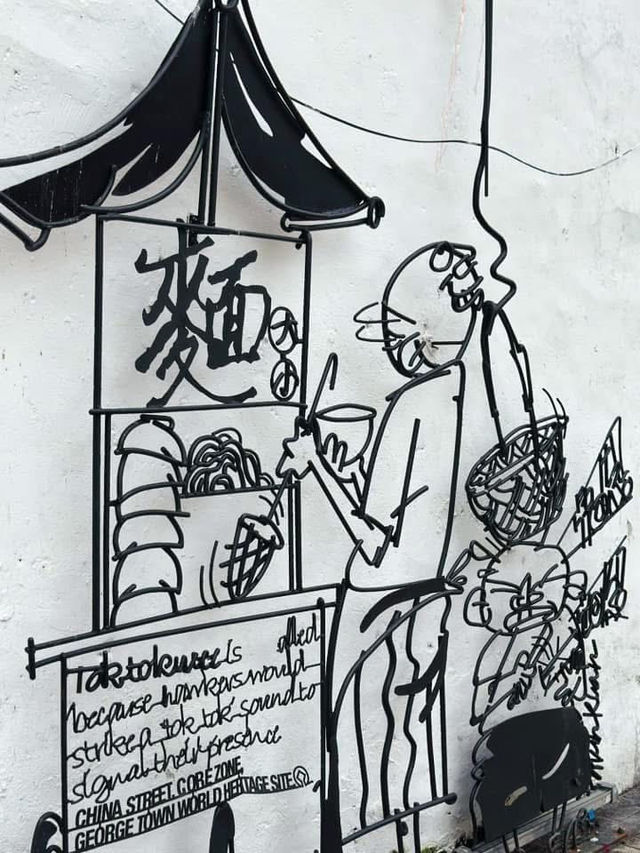 麵
大
小
Tok-tok mee Is called
because hawkers would
strike a 'tok tok' sound to
signal their presence
CHINA STREET, CORE ZONE,
GEORGE TOWN WORLD HERITAGE SITE